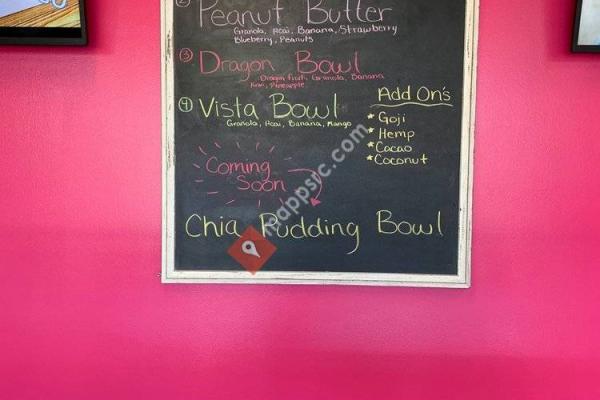 ② Peanut Butter
Granola, Acai, Banana, Strawberry
Blueberry, Peanuts
③ Dragon Bowl
Dragon fruit, Granola, Banana
Kiwi, Pineapple
④ Vista Bowl
Granola, Acai, Banana, Mango
Add On's
* Goji
* Hemp
* Cacao
* Coconut
Coming
Soon
Chia Pudding Bowl